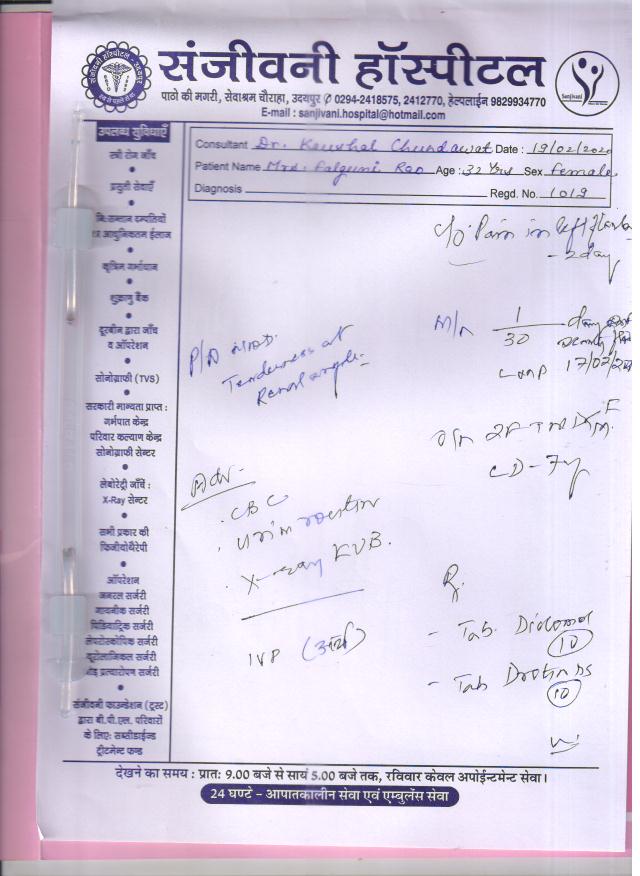 संजीवनी हॉस्पीटल
पाठो की मगरी, सेवाश्रम चौराहा, उदयपुर ✆ 0294-2418575, 2412770, हेल्पलाईन 9829934770
E-mail : sanjivani.hospital@hotmail.com
Sanjivani
उपलब्ध सुविधाएँ
स्त्री रोग जाँच
प्रसुती सेवाएँ
नि:सन्तान दम्पतियों
आधुनिकतम ईलाज
कृत्रिम गर्भाधान
शुक्राणु बैंक
दूरबीन द्वारा जाँच
व ऑपरेशन
सोनोग्राफी (TVS)
सरकारी मान्यता प्राप्त :
गर्भपात केन्द्र
परिवार कल्याण केन्द्र
सोनोग्राफी सेन्टर
लेबोरेट्री जाँचें :
X-Ray सेन्टर
सभी प्रकार की
फिजीयोथैरेपी
ऑपरेशन
जनरल सर्जरी
गायनीक सर्जरी
पिडियाट्रिक सर्जरी
लेपरोस्कोपिक सर्जरी
यूरोलोजिकल सर्जरी
प्रत्यारोपण सर्जरी
संजीवनी फाउन्डेशन (ट्रस्ट)
द्वारा बी.पी.एल. परिवारों
के लिए: सब्सीडाईज्ड
ट्रीटमेन्ट फण्ड
Consultant Dr. Kaushal Chundawat Date : 19/02/2020
Patient Name Mrs. Falguni Rao Age : 32 Yrs Sex Female
Diagnosis Regd. No. 1019
C/o Pain in left flank
- 2day
M/H 1/30
LMP 17/02/20
P/A
Tenderness at
Renal angle
Adv
. CBC
. Urine routine
. X-ray KUB.
IVP
R
- Tab.
10
- Tab
10
देखने का समय : प्रात: 9.00 बजे से सायं 5.00 बजे तक, रविवार केवल अपोईन्टमेन्ट सेवा।
24 घण्टे - आपातकालीन सेवा एवं एम्बुलेंस सेवा